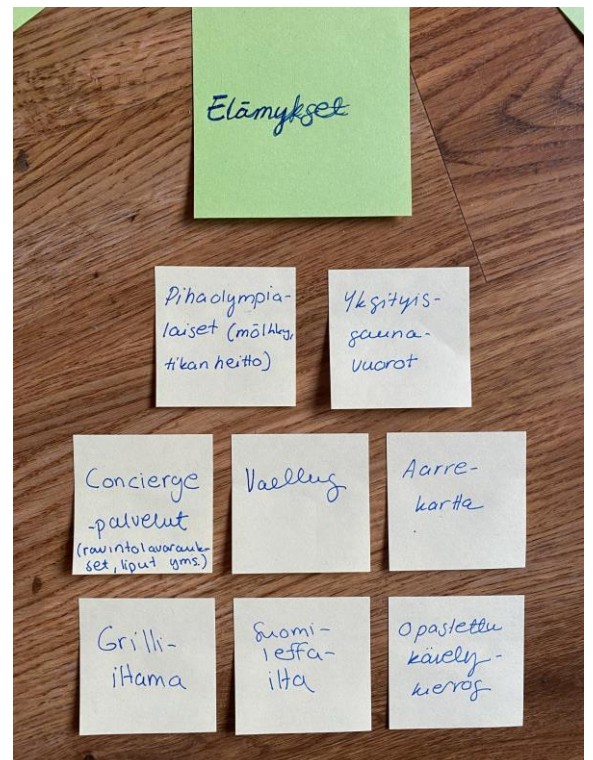 Elämykset
Pihaolympia-
laiset (mölkky,
tikanheitto)
Yksityis-
sauna-
vuorot
Concierge
-palvelut
(ravintolavarauk-
set, liput yms.)
Vaellus
Aarre-
kartta
Grilli-
iltama
Suomi-
leffa-
ilta
Opastettu
kävely-
kierros